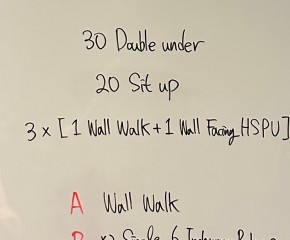 30 Double under
20 Sit up
3 x [ 1 Wall Walk + 1 Wall Facing HSPU ]
A Wall Walk